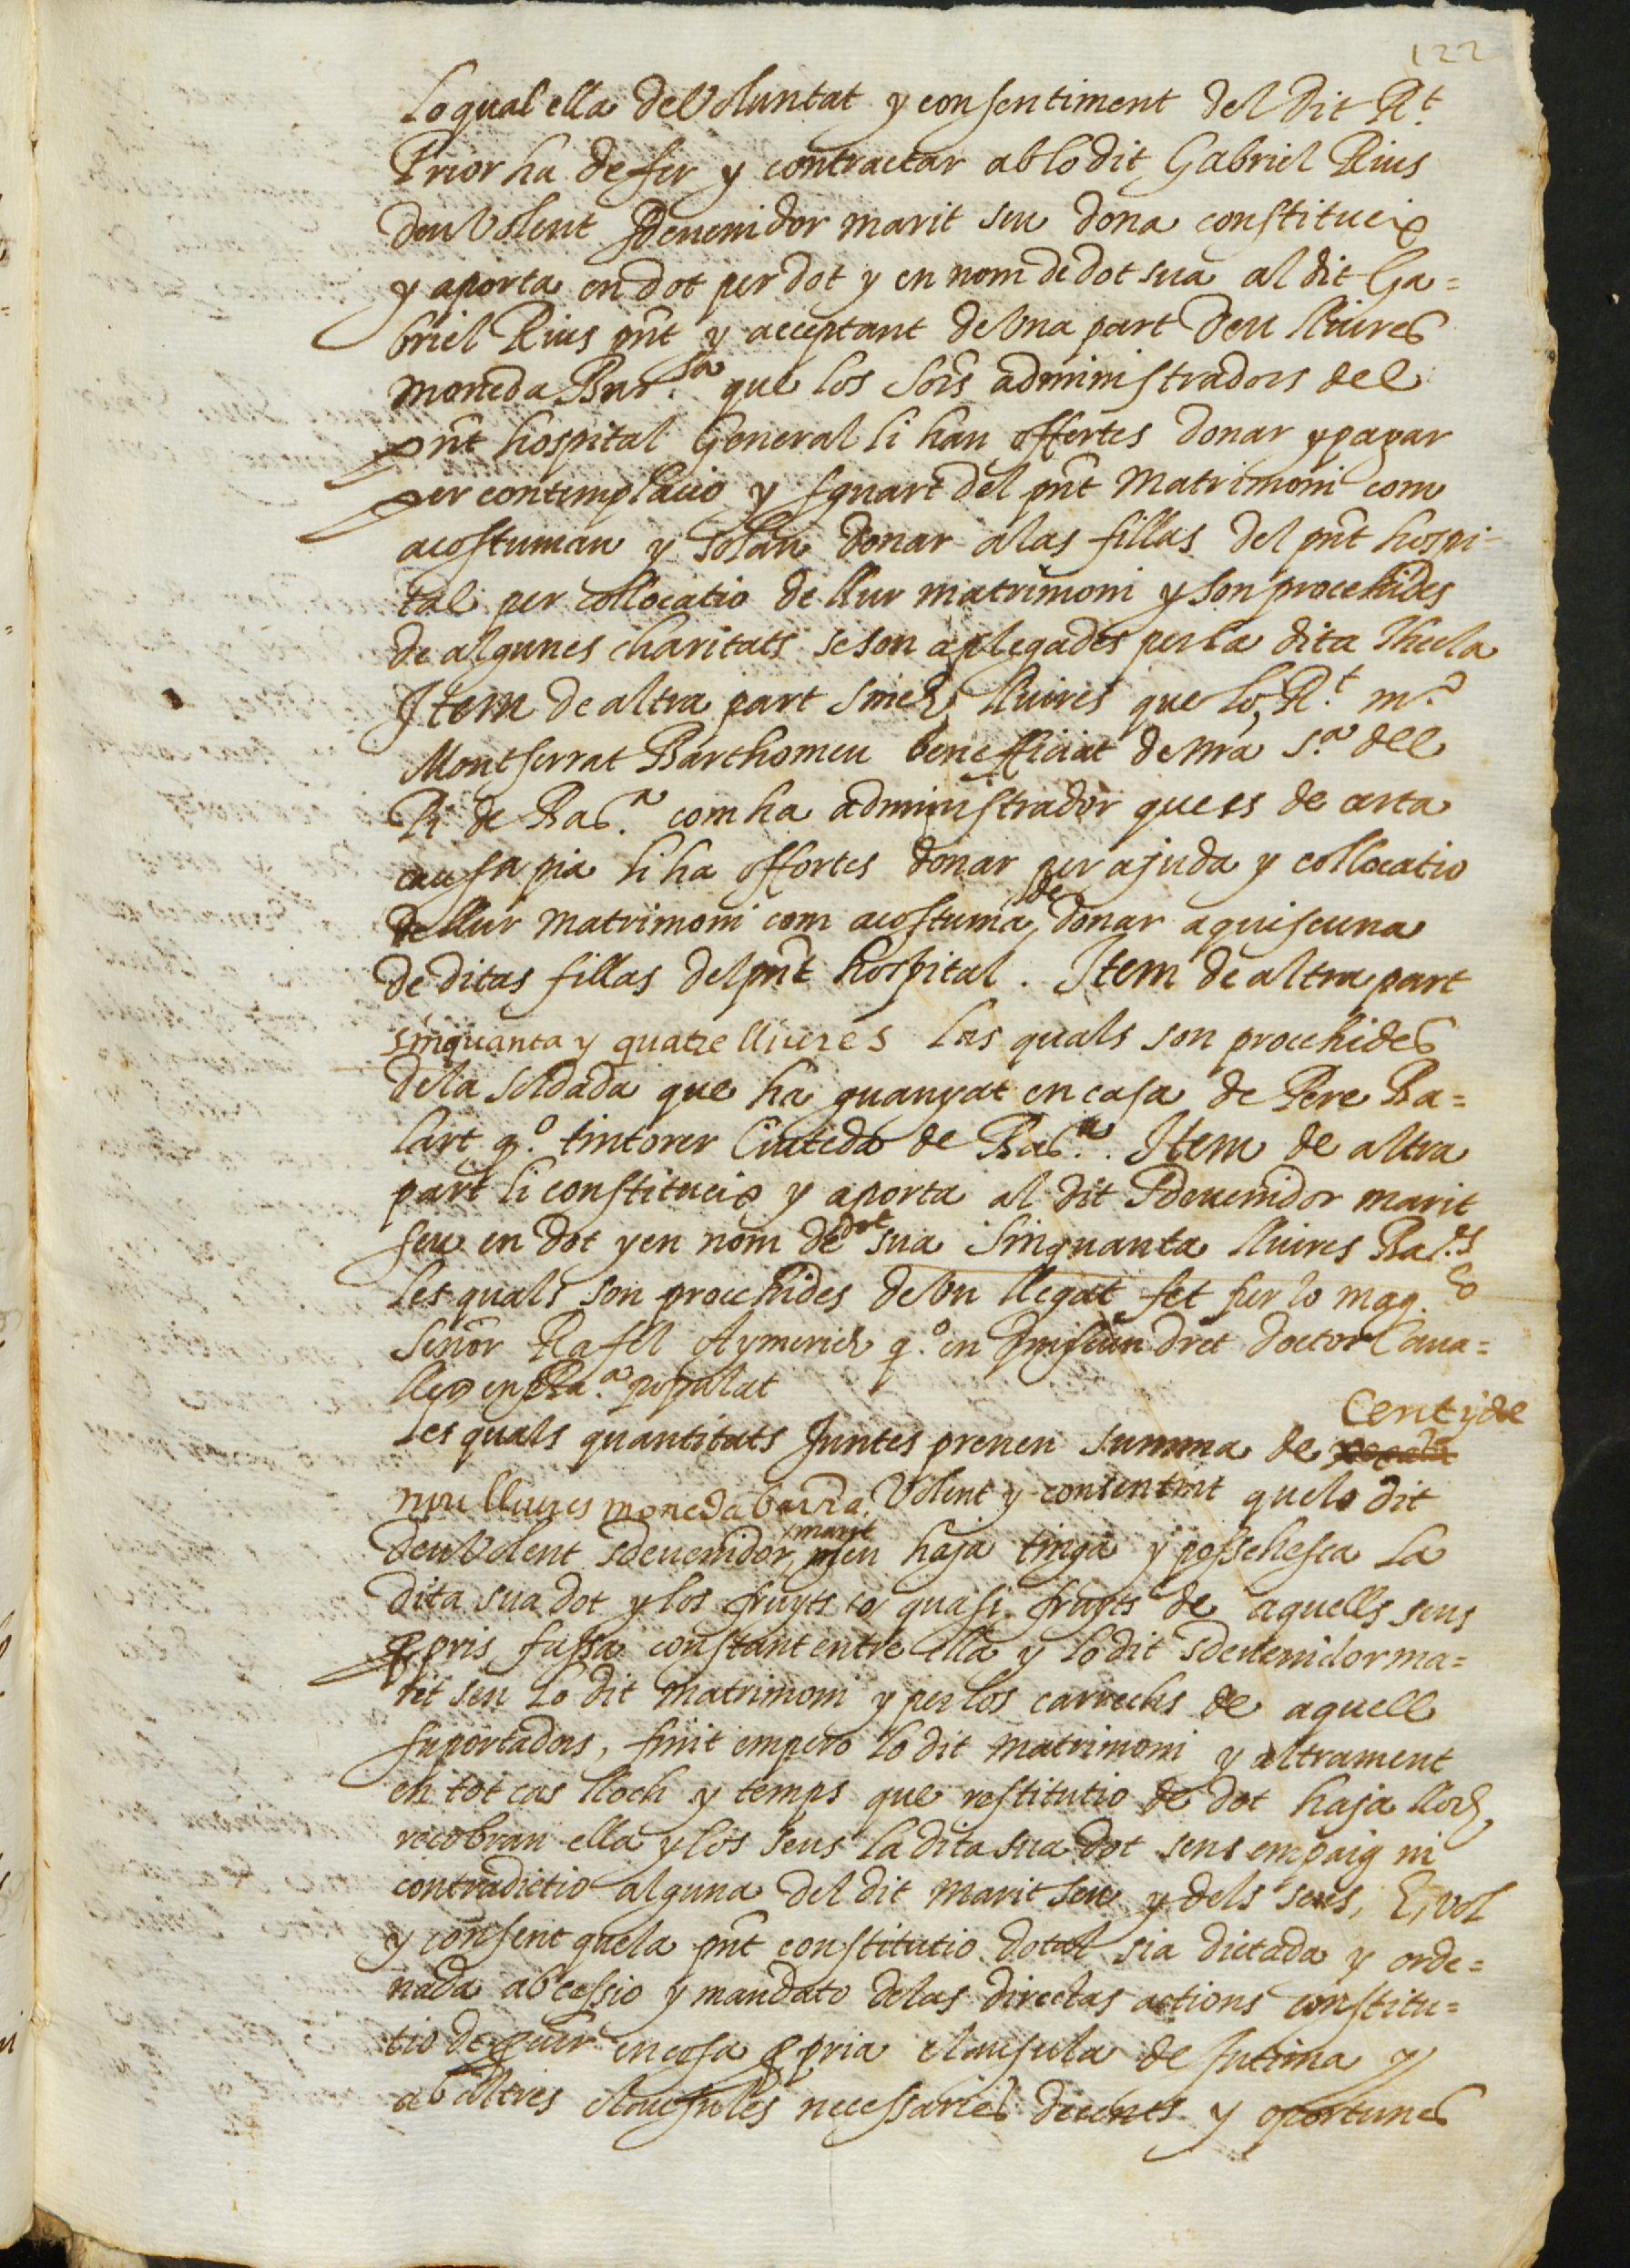 122
Lo qual ella de voluntat y consentiment del dit R.t
Prior ha de fer y contractar ab lo dit Gabriel Rius
deu volent sdevenidor marit seu dona constitueix
y aporta en dot per dot y en nom de dot sua al dit Ga=
briel Rius pñt y acceptant de una part deu lliures
moneda Bar.sa que los sors administradors del
pñt hospital General li han offertes donar y pagar
per contemplacio y sguart del pñt Matrimoni com
acostuman y solan donar a las fillas del pñt hospi-
tal per collocatio de llur matrimoni y son procehides
de algunes charitats se son aplegades per la dita Thecla
Item de altra part sinch lliures que lo R.t m.o
Montserrat Barthomeu benefficiat de nra S.a del
Pi de Bar.a com ha administrador que es de certa
causa pia li ha offertes donar per ajuda y collocatio
de llur matrimoni com acostuma de donar a quiscuna
de ditas fillas del pñt hospital. Item de altra part
sinquanta y quatre lliures las quals son procehides
de la soldada que ha guanyat en casa de Pere Ba=
lart q.o tintorer Ciutedà de Bar.a. Item de altra
part li constitueix y aporta al dit sdevenidor marit
seu en dot y en nom de dot sua sinquanta lliures Bar.s
les quals son procehides de un llegat fet per lo mag.co
señor Rafel Aymerich q.o en quiscun dret doctor Cava=
ller en Bar.a populat
Les quals quantitats juntes prenen summa de Cent y de
nou lliures moneda barña. Volent y consentint que lo dit
deu volent sdevenidor marit meu haja tinga y possehesca la
dita sua dot y los fruyts o quasi fruyts de aquells seus
ppris fassa constant entre ella y lo dit sdevenidor ma=
rit seu lo dit matrimoni y per los carrechs de aquell
suportadors, finit empero lo dit matrimoni y altrament
en tot cas lloch y temps que restitutio de dot haja lloch
recobran ella y los seus la dita sua dot sens empaig ni
contradictio alguna del dit marit seu y dels seus, E, vol
y consent que la pñt constitutio dotal sia dictada y orde=
nada ab cessio y mandato de las directas actions constitu=
tio de pcur en cosa ppria clausula de sutima y
ab altres clausules necessaries decents y oportunes